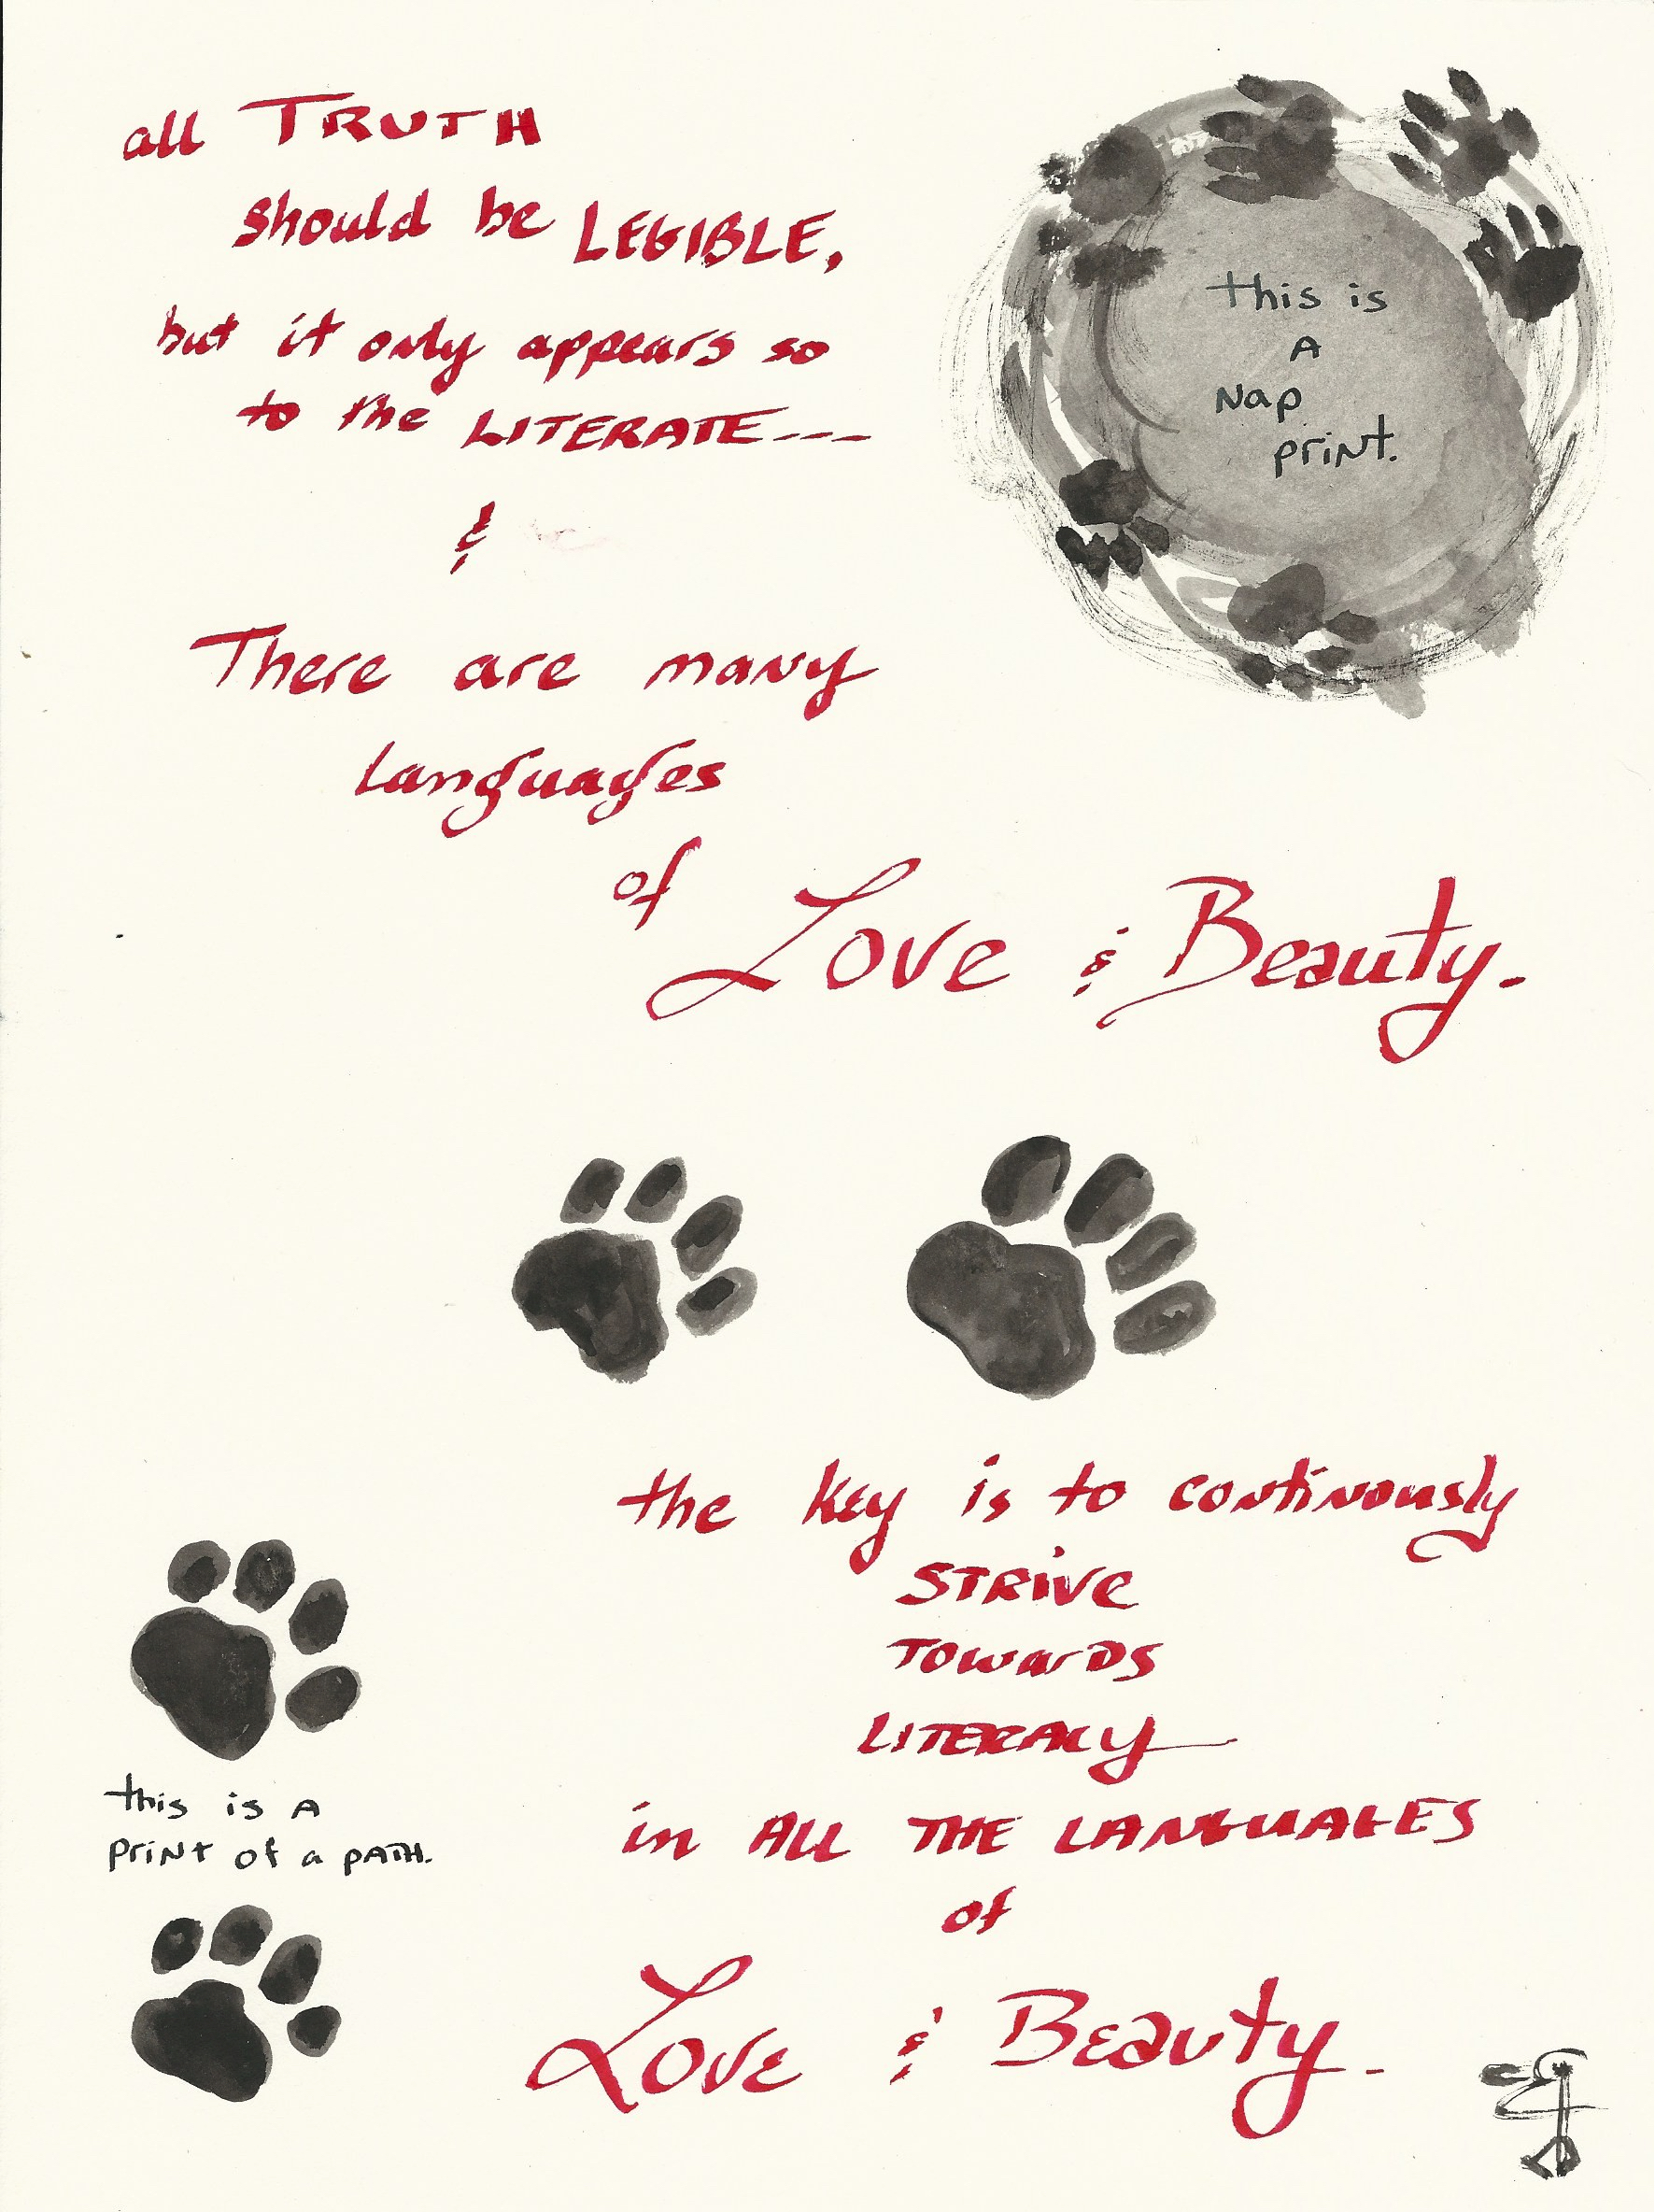 all TRUTH
should be LEGIBLE,
but it only appears so
to the LITERATE---
&
There are many
languages
of
Love & Beauty.
this is
A
Nap
print.
the key is to continously
STRIVE
TOWARDS
LITERACY
in ALL THE LANGUAGES
of
Love & Beauty.
this is A
print of a PATH.